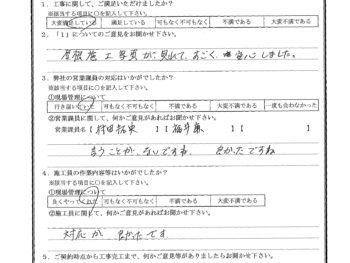 1．工事に関して、ご満足いただけましたか？
※該当する項目に○を記入して下さい。
大変満足している 満足している 可もなく不可もなく 不満である 大変不満である
2．「1」についてのご意見をお聞かせ下さい。
屋根施工写真が、見れて、すごく、安心しました。
3．弊社の営業職員の対応はいかがでしたか？
※該当する項目に○を記入して下さい。
①現場管理について
行き届いていた 可もなく不可もなく 不満である 大変不満である 一度も合わなかった
②営業職員に関して、何かご意見があればお聞かせ下さい。
営業職員名【 】【 】【 】
言うことが、ないですね、良かたですね
4．施工員の作業内容等はいかがでしたか？
※該当する項目に○を記入して下さい。
①現場管理について
良くやってくれた 可もなく不可もなく 不満である 大変不満である
②施工員に関して、何かご意見があればお聞かせ下さい。
対応が 良かたです。
5．ご契約時点から工事完工まで、何かご意見等がありましたらお聞かせ下さい。